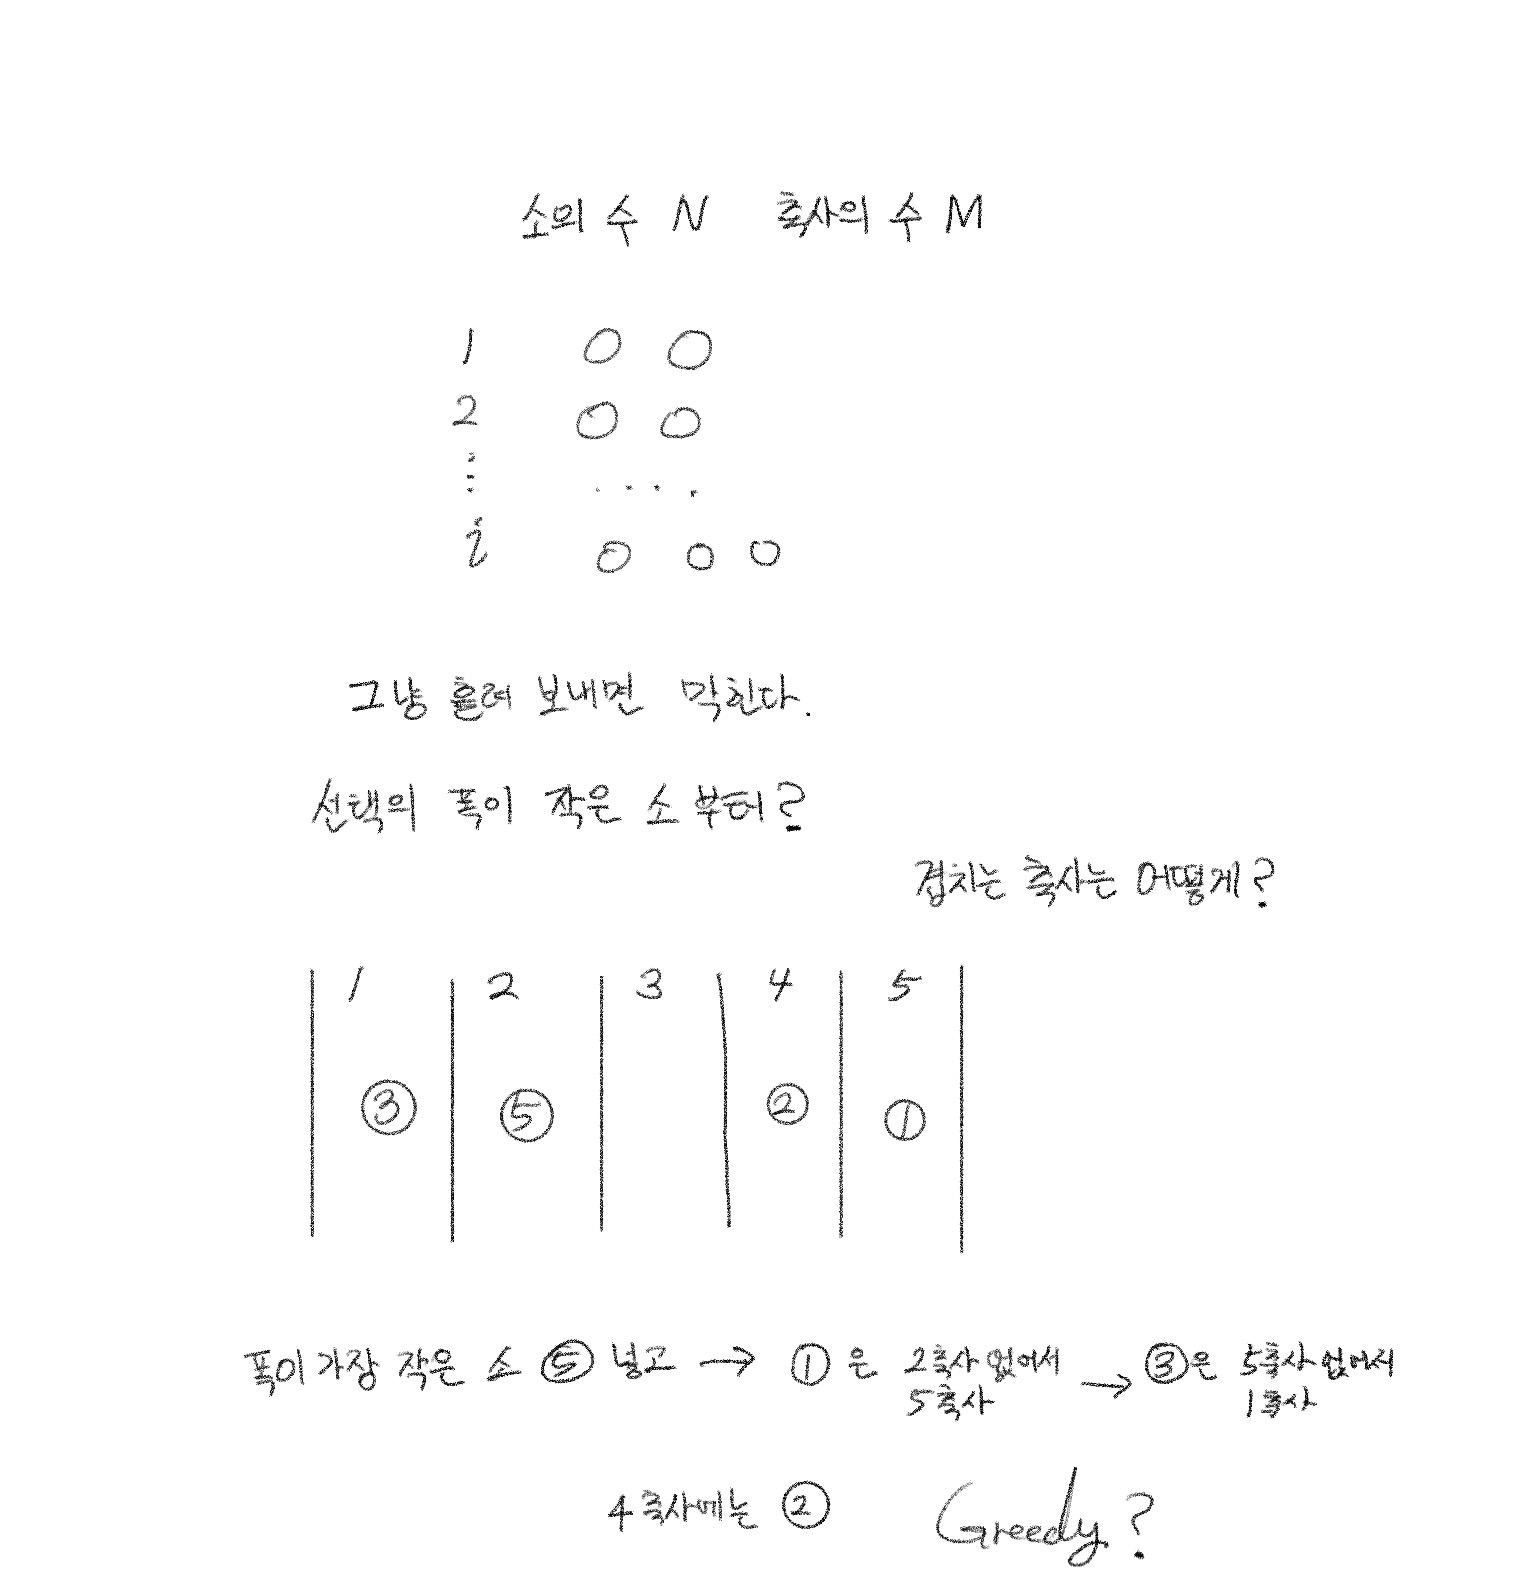 소의 수 N 축사의 수 M
1 O O
2 O O
⋮ . . . .
i O O O
그냥 흘려 보내면 막힌다.
선택의 폭이 작은 소 부터?
겹치는 축사는 어떻게?
1 2 3 4 5
③ ⑤ ② ①
폭이 가장 작은 소 ⑤ 넣고 → ①은 2축사 없어서 → ③은 5축사 없어서
5축사 1축사
4축사에는 ② Greedy?